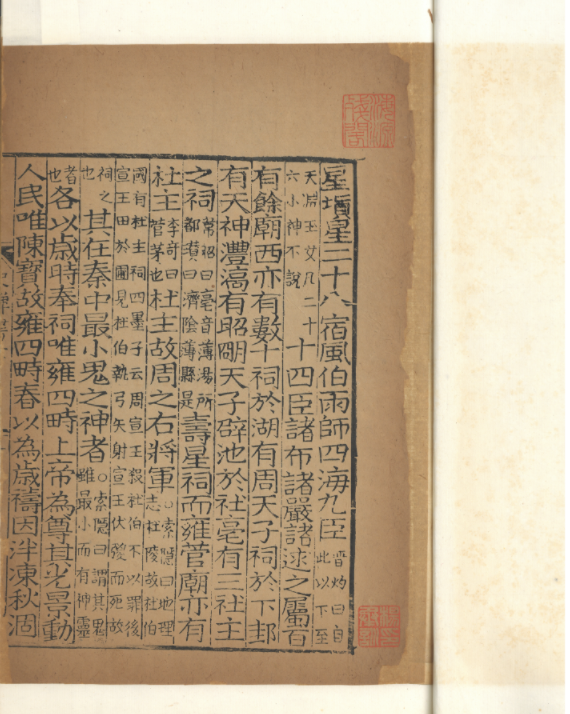 星塡星二十八宿風伯雨師四海九臣晉灼曰自此以下至
天淵玉女凡二十六小神不說十四臣諸布諸嚴諸逑之屬百
有餘廟西亦有數十祠於湖有周天子祠於下邽
有天神灃滈有昭明天子辟池於社亳有三社主
之祠韋昭曰亳音薄湯所都瓚曰濟陰薄縣是壽星祠而雍菅廟亦有
杜主李奇曰菅茅也杜主故周之右將軍○索隱曰地理志杜陵故杜伯
國有杜主祠四墨子云周宣王殺杜伯不以罪後宣王田於圃見杜伯執弓矢射宣王伏弢而死故
祠之也其在秦中最小鬼之神者○索隱曰謂其鬼雖最小而有神靈
者也各以歲時奉祠唯雍四畤上帝為尊其光景動
人民唯陳寶故雍四畤春以為歲禱因泮凍秋涸